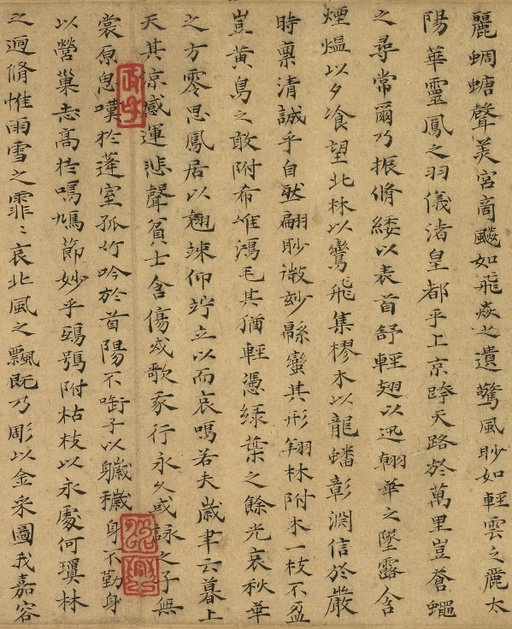 麗蜩螗聲美宮商飈如飛焱之遺驚風眇如輕雲之麗太
陽華靈鳳之羽儀渚皇都乎上京跨天路於萬里豈蒼蠅
之尋常爾乃振脩緌以表首舒輕翅以迅翰華之墜露含
煙熅以夕飡望北林以鸞飛集樛木以龍蟠彰淵信於嚴
時稟清誠乎自然翩眇微妙緜蠻其形翔林附木一枝不盈
豈黃鳥之敢附希唯鴻毛其猶輕憑綠葉之餘光哀秋華
之方零思鳳居以翹竦仰竚立以而哀鳴若夫歲聿云暮上
天其涼感運悲聲貧士含傷或歌家行永久或詠之子無
裳原思嘆於蓬室孤竹吟於首陽不銜子以穢身不勤身
以營巢志高於鳴鳩節妙乎鴟鴞附枯枝以永處何瓊林
之迥脩惟雨雪之霏〻哀北風之飄既乃彫以金采圖我嘉容